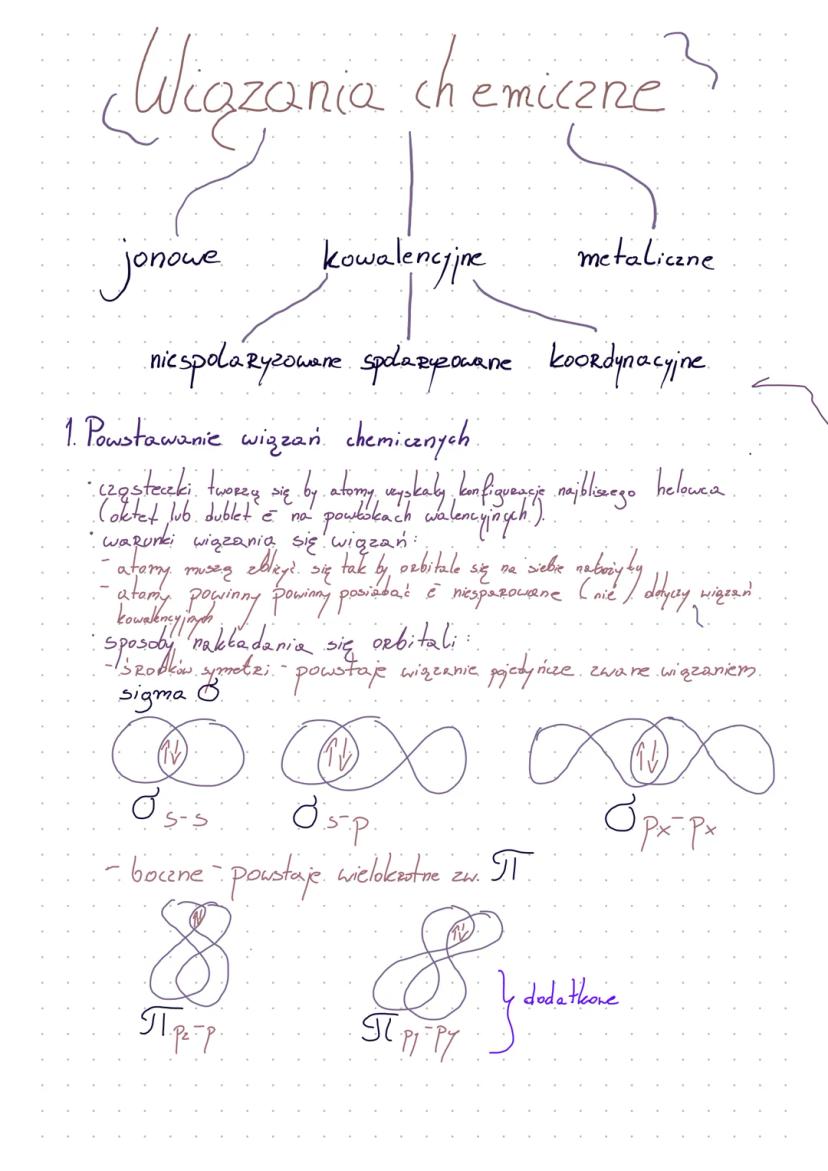 Wiązania chemiczne
jonowe kowalencyjne metaliczne
niespolaryzowane spolaryzowane koordynacyjne
1. Powstawanie wiązań chemicznych
· cząsteczki tworzą się by atomy uzyskały konfigurację najbliższego helowca
(oktet lub dublet ē na powłokach walencyjnych).
· warunki wiązania się wiązań:
- atomy muszą zbliżyć się tak by orbitale się na siebie nałożyły
- atomy powinny powinny posiadać ē niesparowane (nie) dotyczy wiązań
kowalencyjnych
· sposoby nakładania się orbitali:
- środków symetri - powstaje wiązanie pojedyńcze zwane wiązaniem
sigma σ
↑↓ ↑↓ ↑↓
σ s-s σ s-p σ px-px
- boczne - powstaje wielokrotne zw. π
↑↓ ↑↓
} dodatkowe
π pz-p π py-py